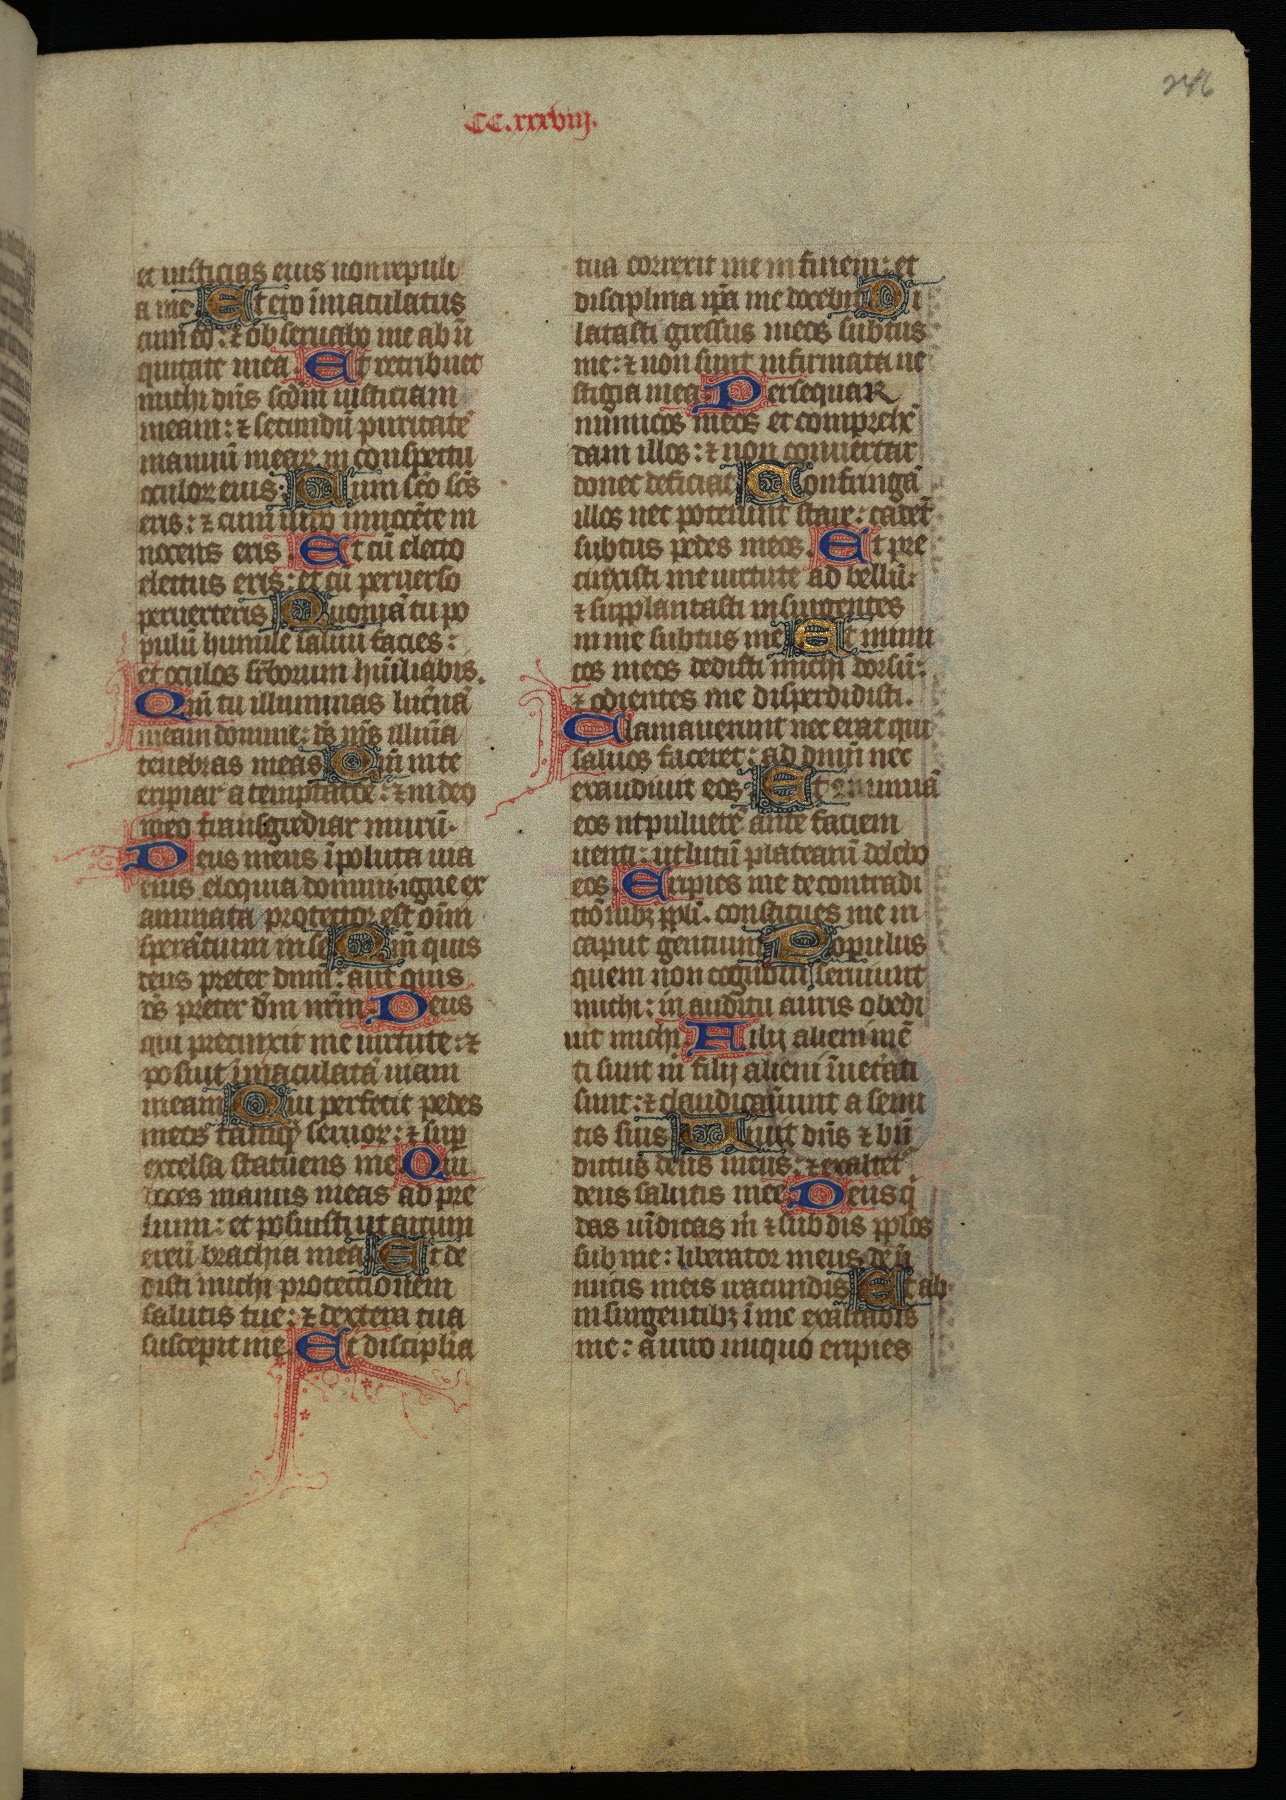 246
CC.xxxviij.
et iusticias eius non repuli
a me Et ero īmaculatus
cum eo: ⁊ obseruabo me ab ī
quitate mea. Et retribuet
michi dn̄s scd̄m iusticiam
meam: ⁊ secundū puritatē
manuū mearꝝ in conspectu
oculoꝝ eius. Cum sc̄o sc̄s
eris: ⁊ cum uiro innocēte in
nocens eris. Et cū electo
electus eris: et cū peruerso
peruerteris Quoniā tu po
pulū humilē saluū facies:
et oculos suꝑborum hūiliabis.
Qm̄ tu illuminas lucernā
meam domine: ds̄ ms̄ illuīa
tenebras meas Qm̄ in te
eripiar a temptatōe: ⁊ in deo
meo transgrediar murū.
Deus meus īpoluta uia
eius eloquia domini. igne ex
aminata protector est om̄
sperātium in se Qm̄ quis
deus preter dnm̄: aut quis
ds̄ preter dm̄ nrm̄. Deus
qui precinxit me uirtute: ⁊
posuit īmaculatā uiam
meam Qui perfecit pedes
meos tamqꝫ ceruoꝝ: ⁊ sup
excelsa statuens me Qui
doces manus meas ad pre
lium: et posuisti ut arcum
ereū brachia mea Et de
disti michi protectionem
salutis tue: ⁊ dextera tua
suscepit me. Et disciplīa
tua correxit me in finem: et
disciplina ip̄a me docebit Di
latasti gressus meos subtus
me: ⁊ non sunt infirmata ue
stigia mea. Persequar
inimicos meos et comprehē
dam illos: ⁊ non conuertar
donec deficiāt Confringā
illos nec poterunt stare: cadēt
subtus pedes meos. Et pre
cinxisti me uirtute ad bellū:
⁊ supplantasti insurgentes
in me subtus me Et inimi
cos meos dedisti michi dorsū:
⁊ odientes me disperdidisti.
Clamauerunt nec erat qui
saluos faceret: ad dnm̄ nec
exaudiuit eos Et cōminuā
eos ut puluerē ante faciem
uenti: ut lutū platearū delebo
eos. Eripies me de contradi
ctōnibꝫ ppl̄i. constitues me in
caput gentium Populus
quem non cognoui seruiuit
michi: in auditu auris obedi
uit michi Filij alieni mē
titi sunt m̄ filij alieni īuetati
sunt: ⁊ claudicauerunt a semi
tis suis Uiuit dn̄s ⁊ bn̄
dictus deus meus: ⁊ exaltet̄
deus salutis mee Deus q̄
das uīdictas m̄ ⁊ subdis pplōs
sub me: liberator meus de ī
imicis meis iracundis Et ab
insurgentibꝫ ī me exaltabis
me: a uiro iniquo eripies